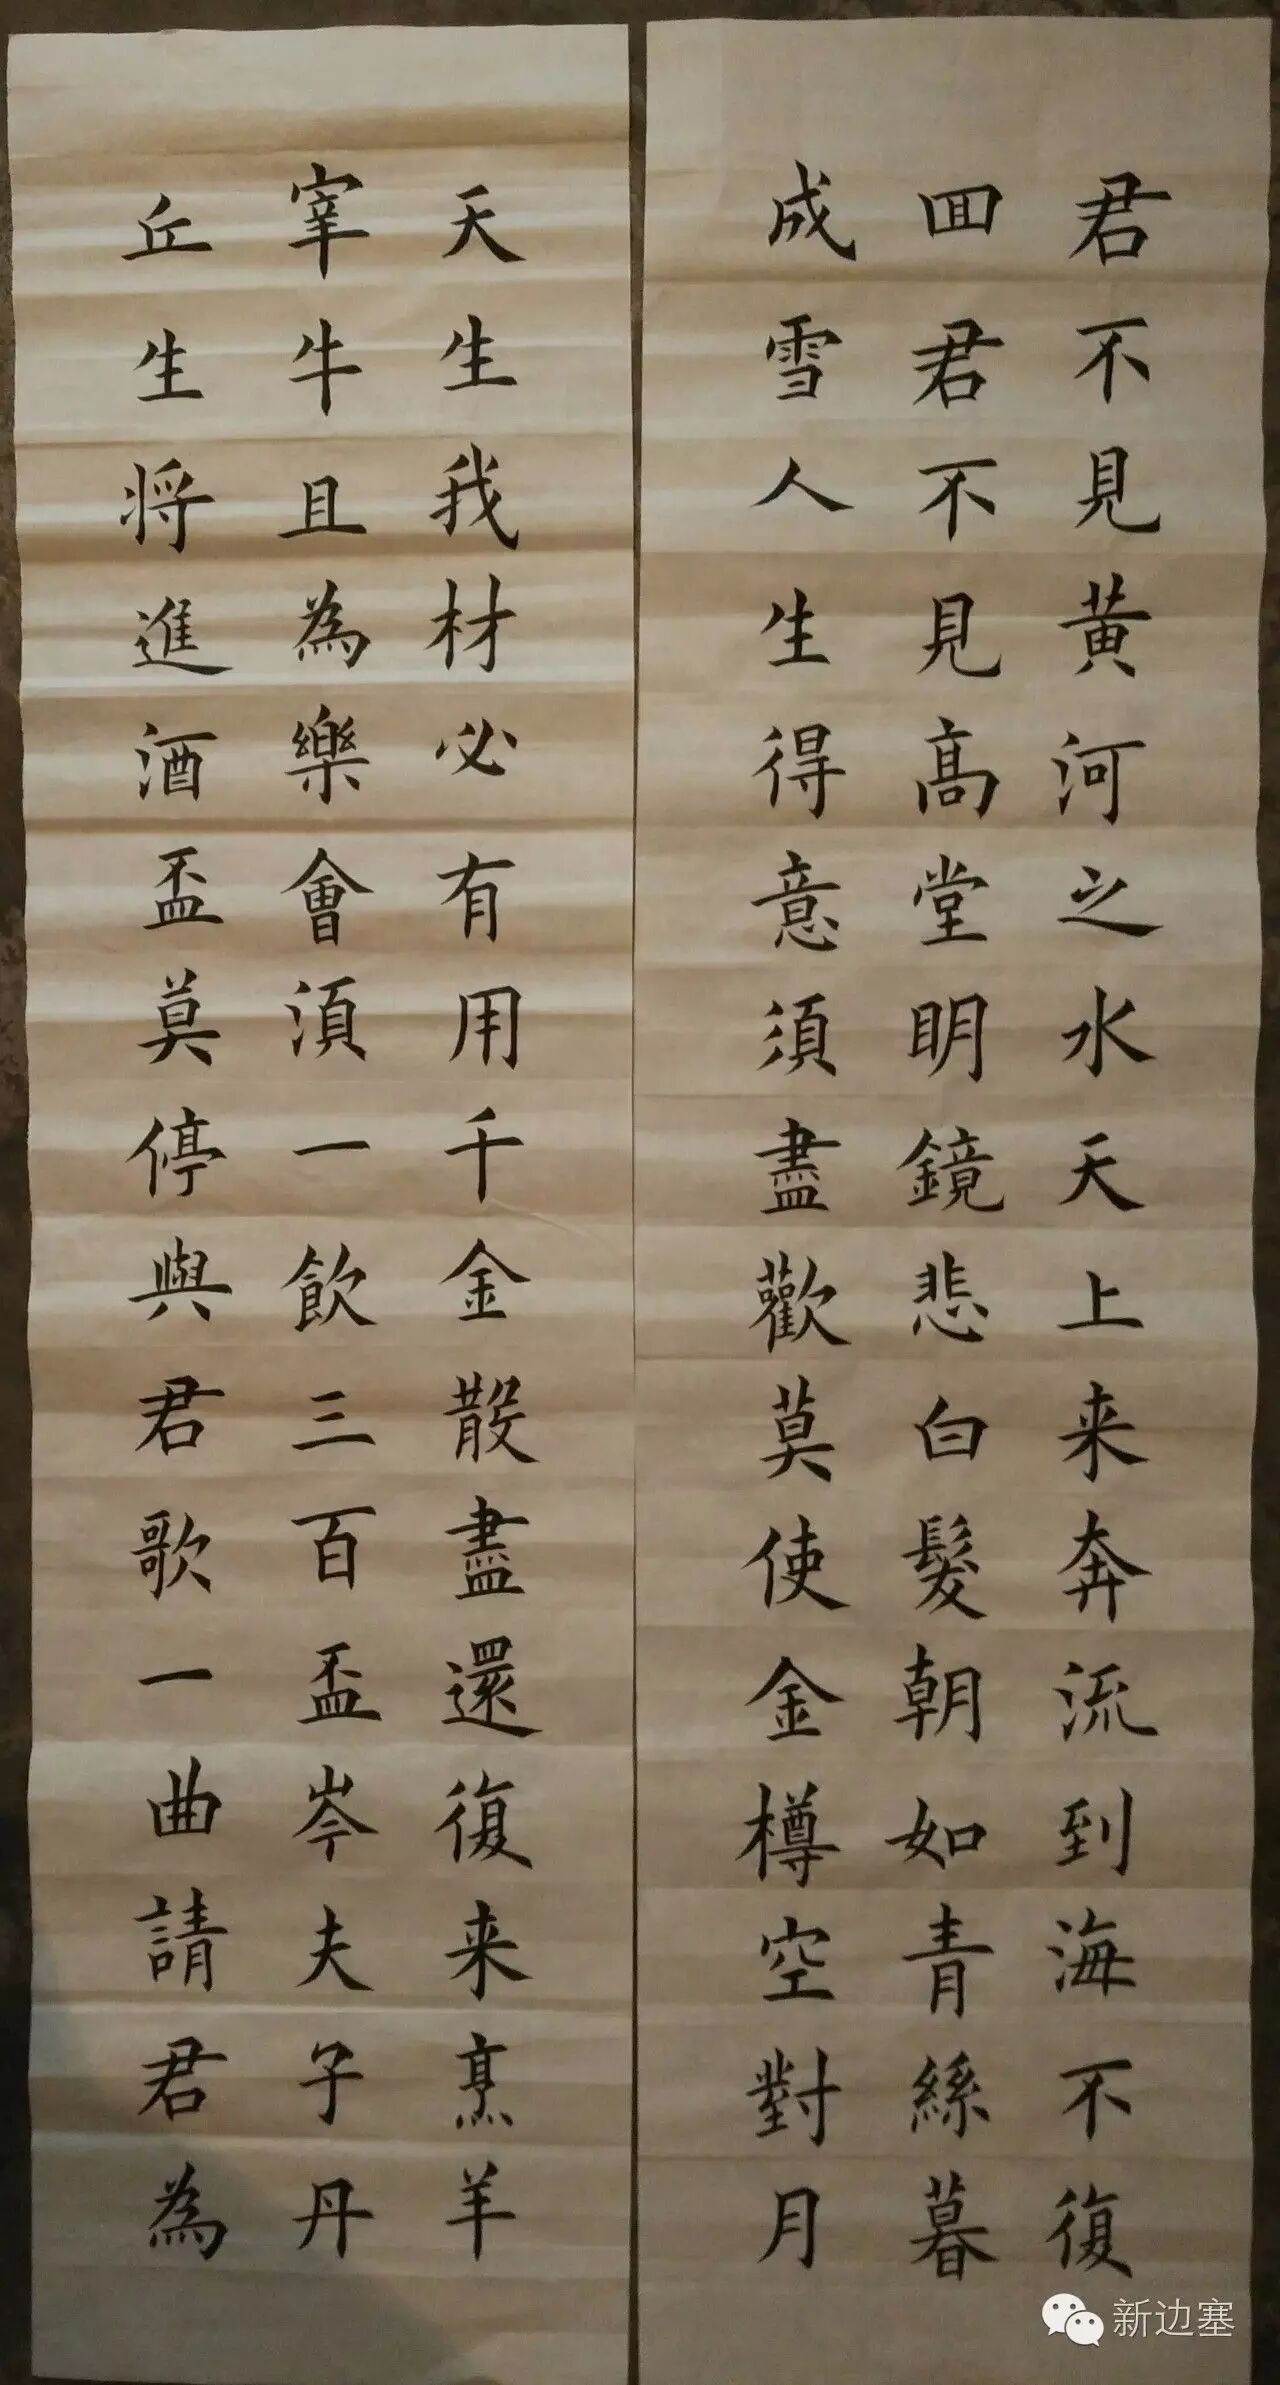 君不見黄河之水天上来奔流到海不復
回君不見高堂明鏡悲白髮朝如青絲暮
成雪人生得意須盡歡莫使金樽空對月
天生我材必有用千金散盡還復来烹羊
宰牛且為樂會須一飲三百盃岑夫子丹
丘生将進酒盃莫停與君歌一曲請君為
新边塞